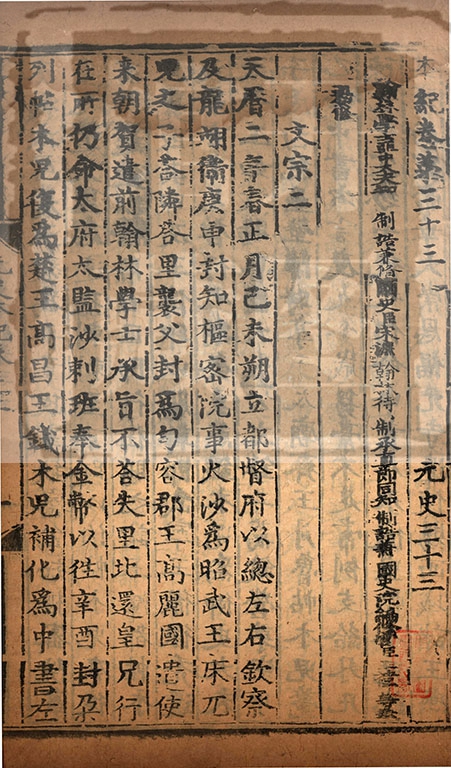 本紀卷苐三十三 元史三十三
翰林學士亞中大夫知 制誥兼脩國史臣宋濂翰林待 制承直郎同知 制誥兼 國史院編
文宗二
天曆二年春正月己未朔立都督府以總左右欽察
及龍翊衞庚申封知樞密院事火沙爲昭武王床兀
兒之子荅隣荅里襲父封爲勾容郡王高麗國遣使
来朝賀遣前翰林學士承旨不荅失里北還皇兄行
在所仍命太府太監沙剌班奉金幣以徃辛酉封朶
列帖木兒復爲楚王高昌王鐵木兒補化爲中書左